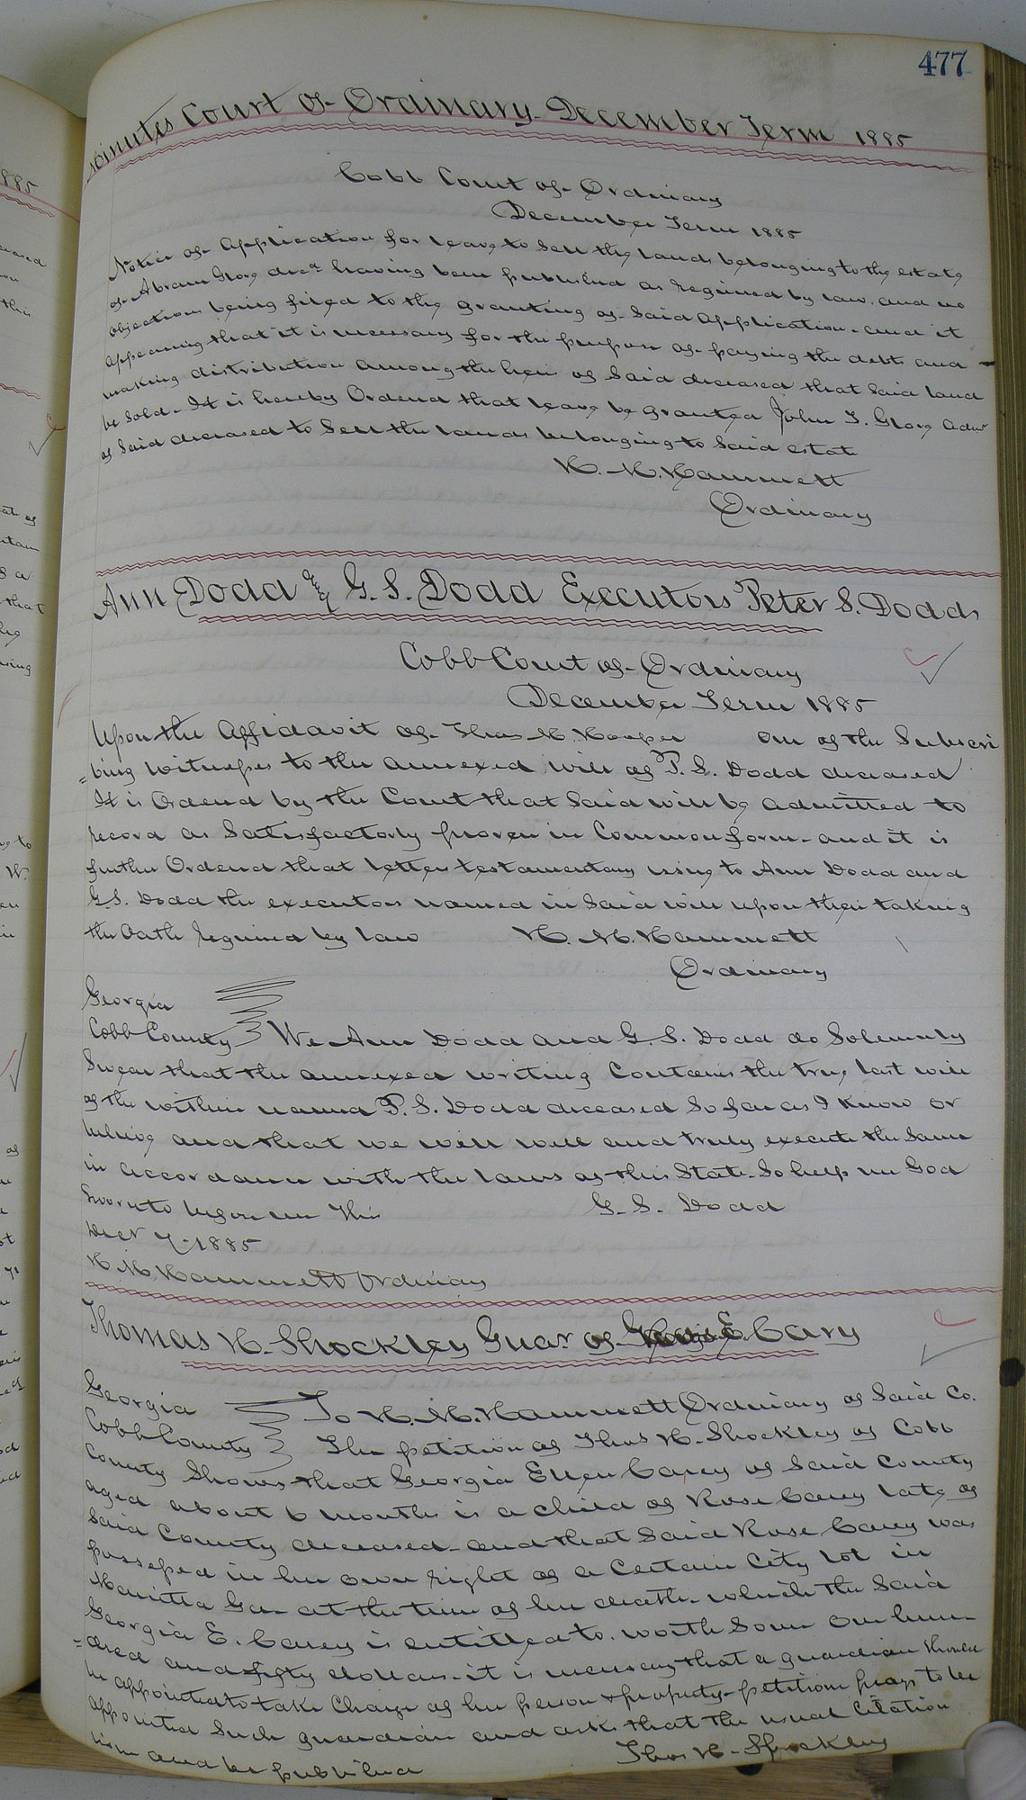 477
Minutes Court of Ordinary December Term 1885
Cobb Court of Ordinary
December Term 1885
Notice of Application for leave to Sell the lands belonging to the estate
of Abram Glore decd having been published as required by law. and no
objections being filed to the granting of Said Application. and it
appearing that it is necessary for the purpose of paying the debts and
making distribution among the heirs of Said deceased that Said land
be sold. It is hereby Ordered that leave be granted John T. Glore Admr
of Said deceased to Sell the lands belonging to Said estate
H. M. Hammett
Ordinary
Ann Dodd & G. S. Dodd Executors Peter S. Dodd
Cobb Court of Ordinary
December Term 1885
Upon the Affidavit of Thos H. Hooper one of the Subscri
=bing witnesses to the annexed will of P. S. Dodd deceased
It is Ordered by the Court that Said will be admitted to
record as Satisfactorly proven in Common form. and it is
further Ordered that letters testamentary issue to Ann Dodd and
G.S. Dodd the executors named in Said will upon their taking
the Oath required by law H. M. Hammett
Ordinary
Georgia
Cobb County We Ann Dodd and G. S. Dodd do Solemnly
Swear that the annexed writing Contains the true last will
of the within named P. S. Dodd deceased So far as I know or
believe and that we will well and truly execute the Same
in accordance with the laws of this State. So help me God
Sworn to before me this G. S. Dodd
Decr 7. 1885
H. M. Hammett Ordinary
Thomas H. Shockley Guar of E. Cary
Georgia To H. M. Hammett Ordinary of Said Co.
Cobb County The petition of Thos H. Shockley of Cobb
County Shows that Georgia Ellen Carey of Said County
aged about 6 months is a child of Rose Carey late of
Said County deceased. and that Said Rose Carey was
possessed in her own right of a Certain City lot in
Marietta Ga. at the time of her death. which the Said
Georgia E. Carey is entitled to. worth Some One hun
=dred and fifty dollars. it is necessary that a guardian should
be appointed to take Charge of her person & property. petitioner prays to be
appointed Such guardian and asks that the usual Citation
issue and be published Thos H. Shockley